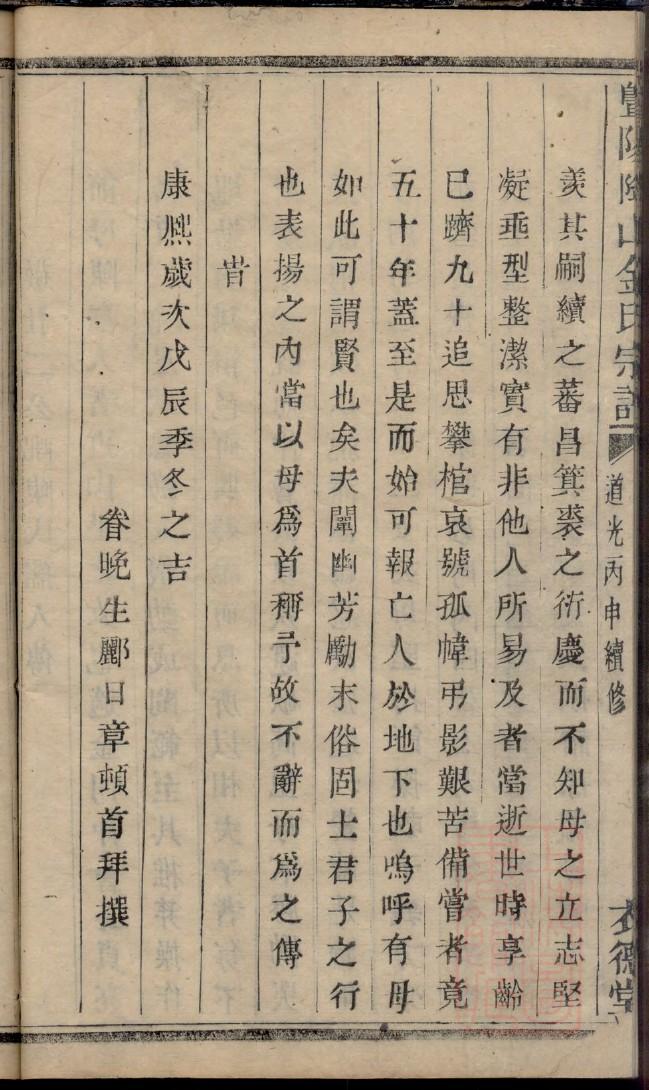 暨陽陰山金氏宗譜
道光丙申續修
衣德堂
羨其嗣續之蕃昌箕裘之衍慶而不知母之立志堅
凝垂型整潔實有非他人所易及者當逝世時享齡
已躋九十追思攀棺哀號孤幃弔影艱苦備嘗者竟
五十年蓋至是而始可報亡人於地下也嗚呼有母
如此可謂賢也矣夫闡幽芳勵末俗固士君子之行
也表揚之內當以母爲首稱予故不辭而爲之傳
旹
康熙歲次戊辰季冬之吉
眷晚生酈日章頓首拜撰